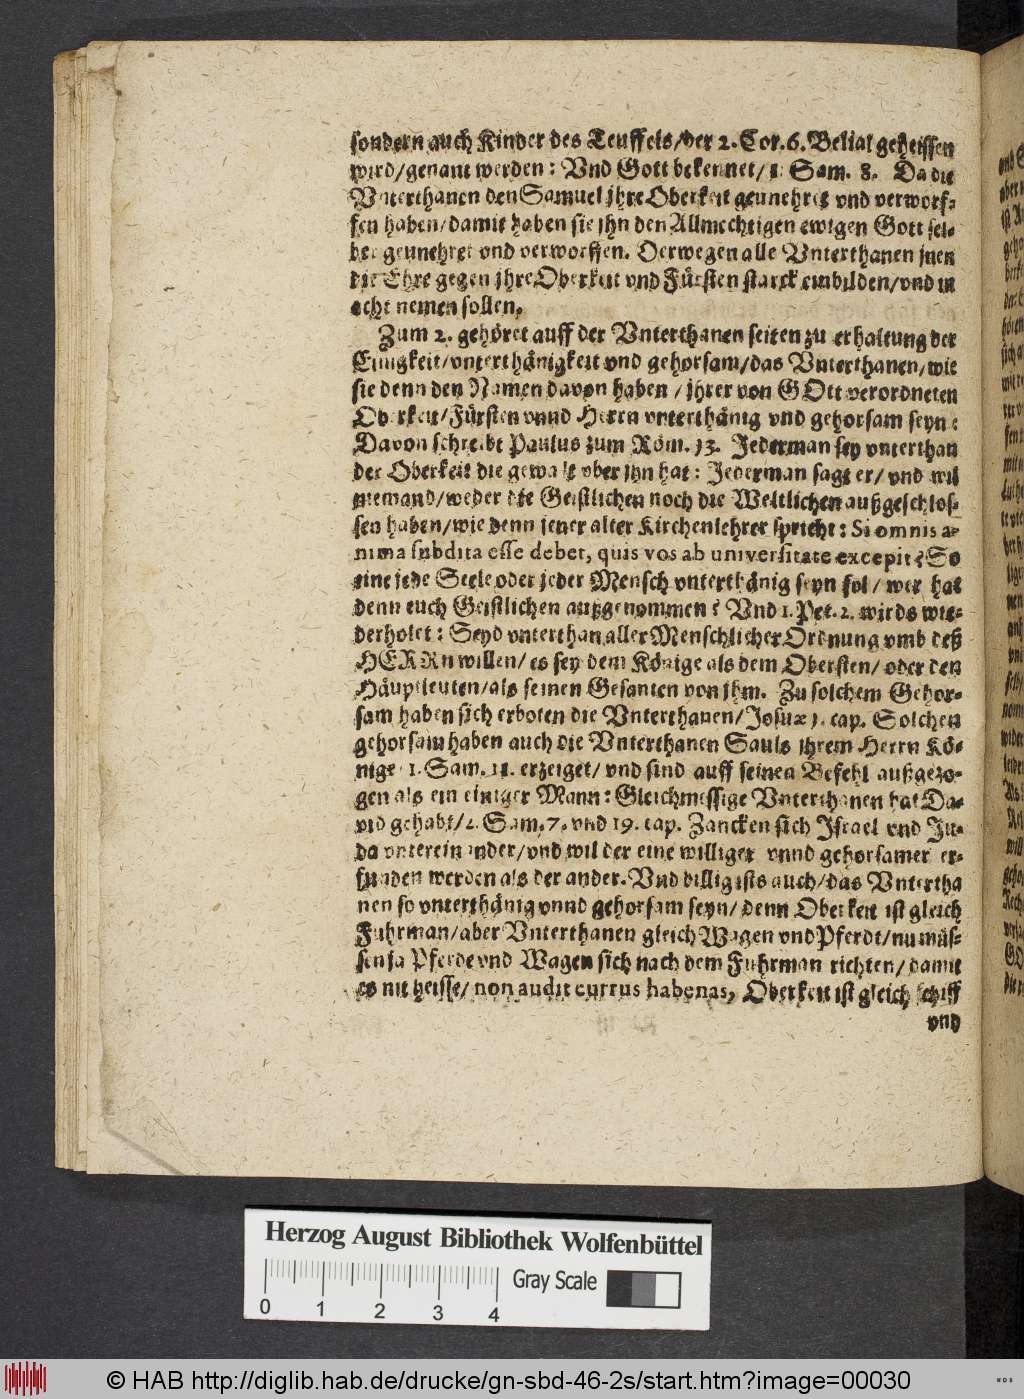 sondern auch Kinder des Teuffels/der 2. Cor. 6. Belial geheissen
wird/genant werden: Vnd Gott bekennet/ 1. Sam. 8. Da die
Vnterthanen den Samuel jhre Oberkeit geunehret vnd verworf-
fen haben/damit haben sie jhn den Allmechtigen ewigen Gott sel-
ber geunehret vnd verworffen. Derwegen alle Vnterthanen jnen
die Ehre gegen jhre Oberkeit vnd Fürsten starck einbilden/vnd in
acht nemen sollen.
Zum 2. gehöret auff der Vnterthanen seiten zu erhaltung der
Einigkeit/vnterthänigkeit vnd gehorsam/das Vnterthanen/wie
sie denn den Namen davon haben / jhrer von GOtt verordneten
Oberkeit/Fürsten vnnd Herrn vnterthänig vnd gehorsam seyn:
Davon schreibt Paulus zum Röm. 13. Jederman sey vnterthan
der Oberkeit die gewalt vber jhn hat: Jederman sagt er/ vnd wil
niemand/weder die Geistlichen noch die Weltlichen außgeschlos-
sen haben/wie denn jener alter Kirchenlehrer spricht: Si omnis a-
nima subdita esse debet, quis vos ab universitate excepit? So
eine jede Seele oder jeder Mensch vnterthänig seyn sol/ wer hat
denn euch Geistlichen außgenommen? Vnd 1. Pet. 2. wirds wie-
derholet: Seyd vnterthan aller Menschlicher Ordnung vmb deß
HERRn willen/ es sey dem Könige als dem Obersten/ oder den
Häuptleuten/als seinen Gesanten von jhm. Zu solchem Gehor-
sam haben sich erboten die Vnterthanen/Josuæ 1. cap. Solchen
gehorsam haben auch die Vnterthanen Sauls jhrem Herrn Kö-
nige 1. Sam. 11. erzeiget/ vnd sind auff seinen Befehl außgezo-
gen als ein einiger Mann: Gleichmessige Vnterthanen hat Da-
vid gehabt/2. Sam. 7. vnd 19. cap. Zancken sich Israel vnd Ju-
da vntereinander/vnd wil der eine williger vnnd gehorsamer er-
funden werden als der ander. Vnd billig ists auch/das Vntertha
nen so vnterthänig vnnd gehorsam seyn/ denn Oberkeit ist gleich
Fuhrman/aber Vnterthanen gleich Wagen vnd Pferdt/nu müs-
sen ja Pferde vnd Wagen sich nach dem Fuhrman richten/ damit
es nit heisse/ non audit currus habenas, Oberkeit ist gleich schiff
vnd
Herzog August Bibliothek Wolfenbüttel
Gray Scale
0 1 2 3 4
© HAB http://diglib.hab.de/drucke/gn-sbd-46-2s/start.htm?image=00030